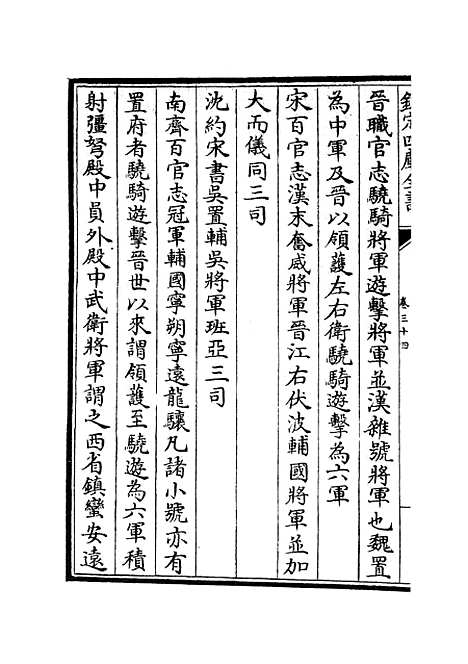 欽定四庫全書
卷三十四
晉職官志驍騎將軍遊擊將軍並漢雜號將軍也魏置
為中軍及晉以領護左右衛驍騎遊擊為六軍
宋百官志漢末奮威將軍晉江右伏波輔國將軍並加
大而儀同三司
沈約宋書吳置輔吳將軍班亞三司
南齊百官志冠軍輔國寧朔寧遠龍驤凡諸小號亦有
置府者驍騎遊擊晉世以來謂領護至驍遊為六軍積
射彊弩殿中員外殿中武衛將軍謂之西省鎮蠻安遠